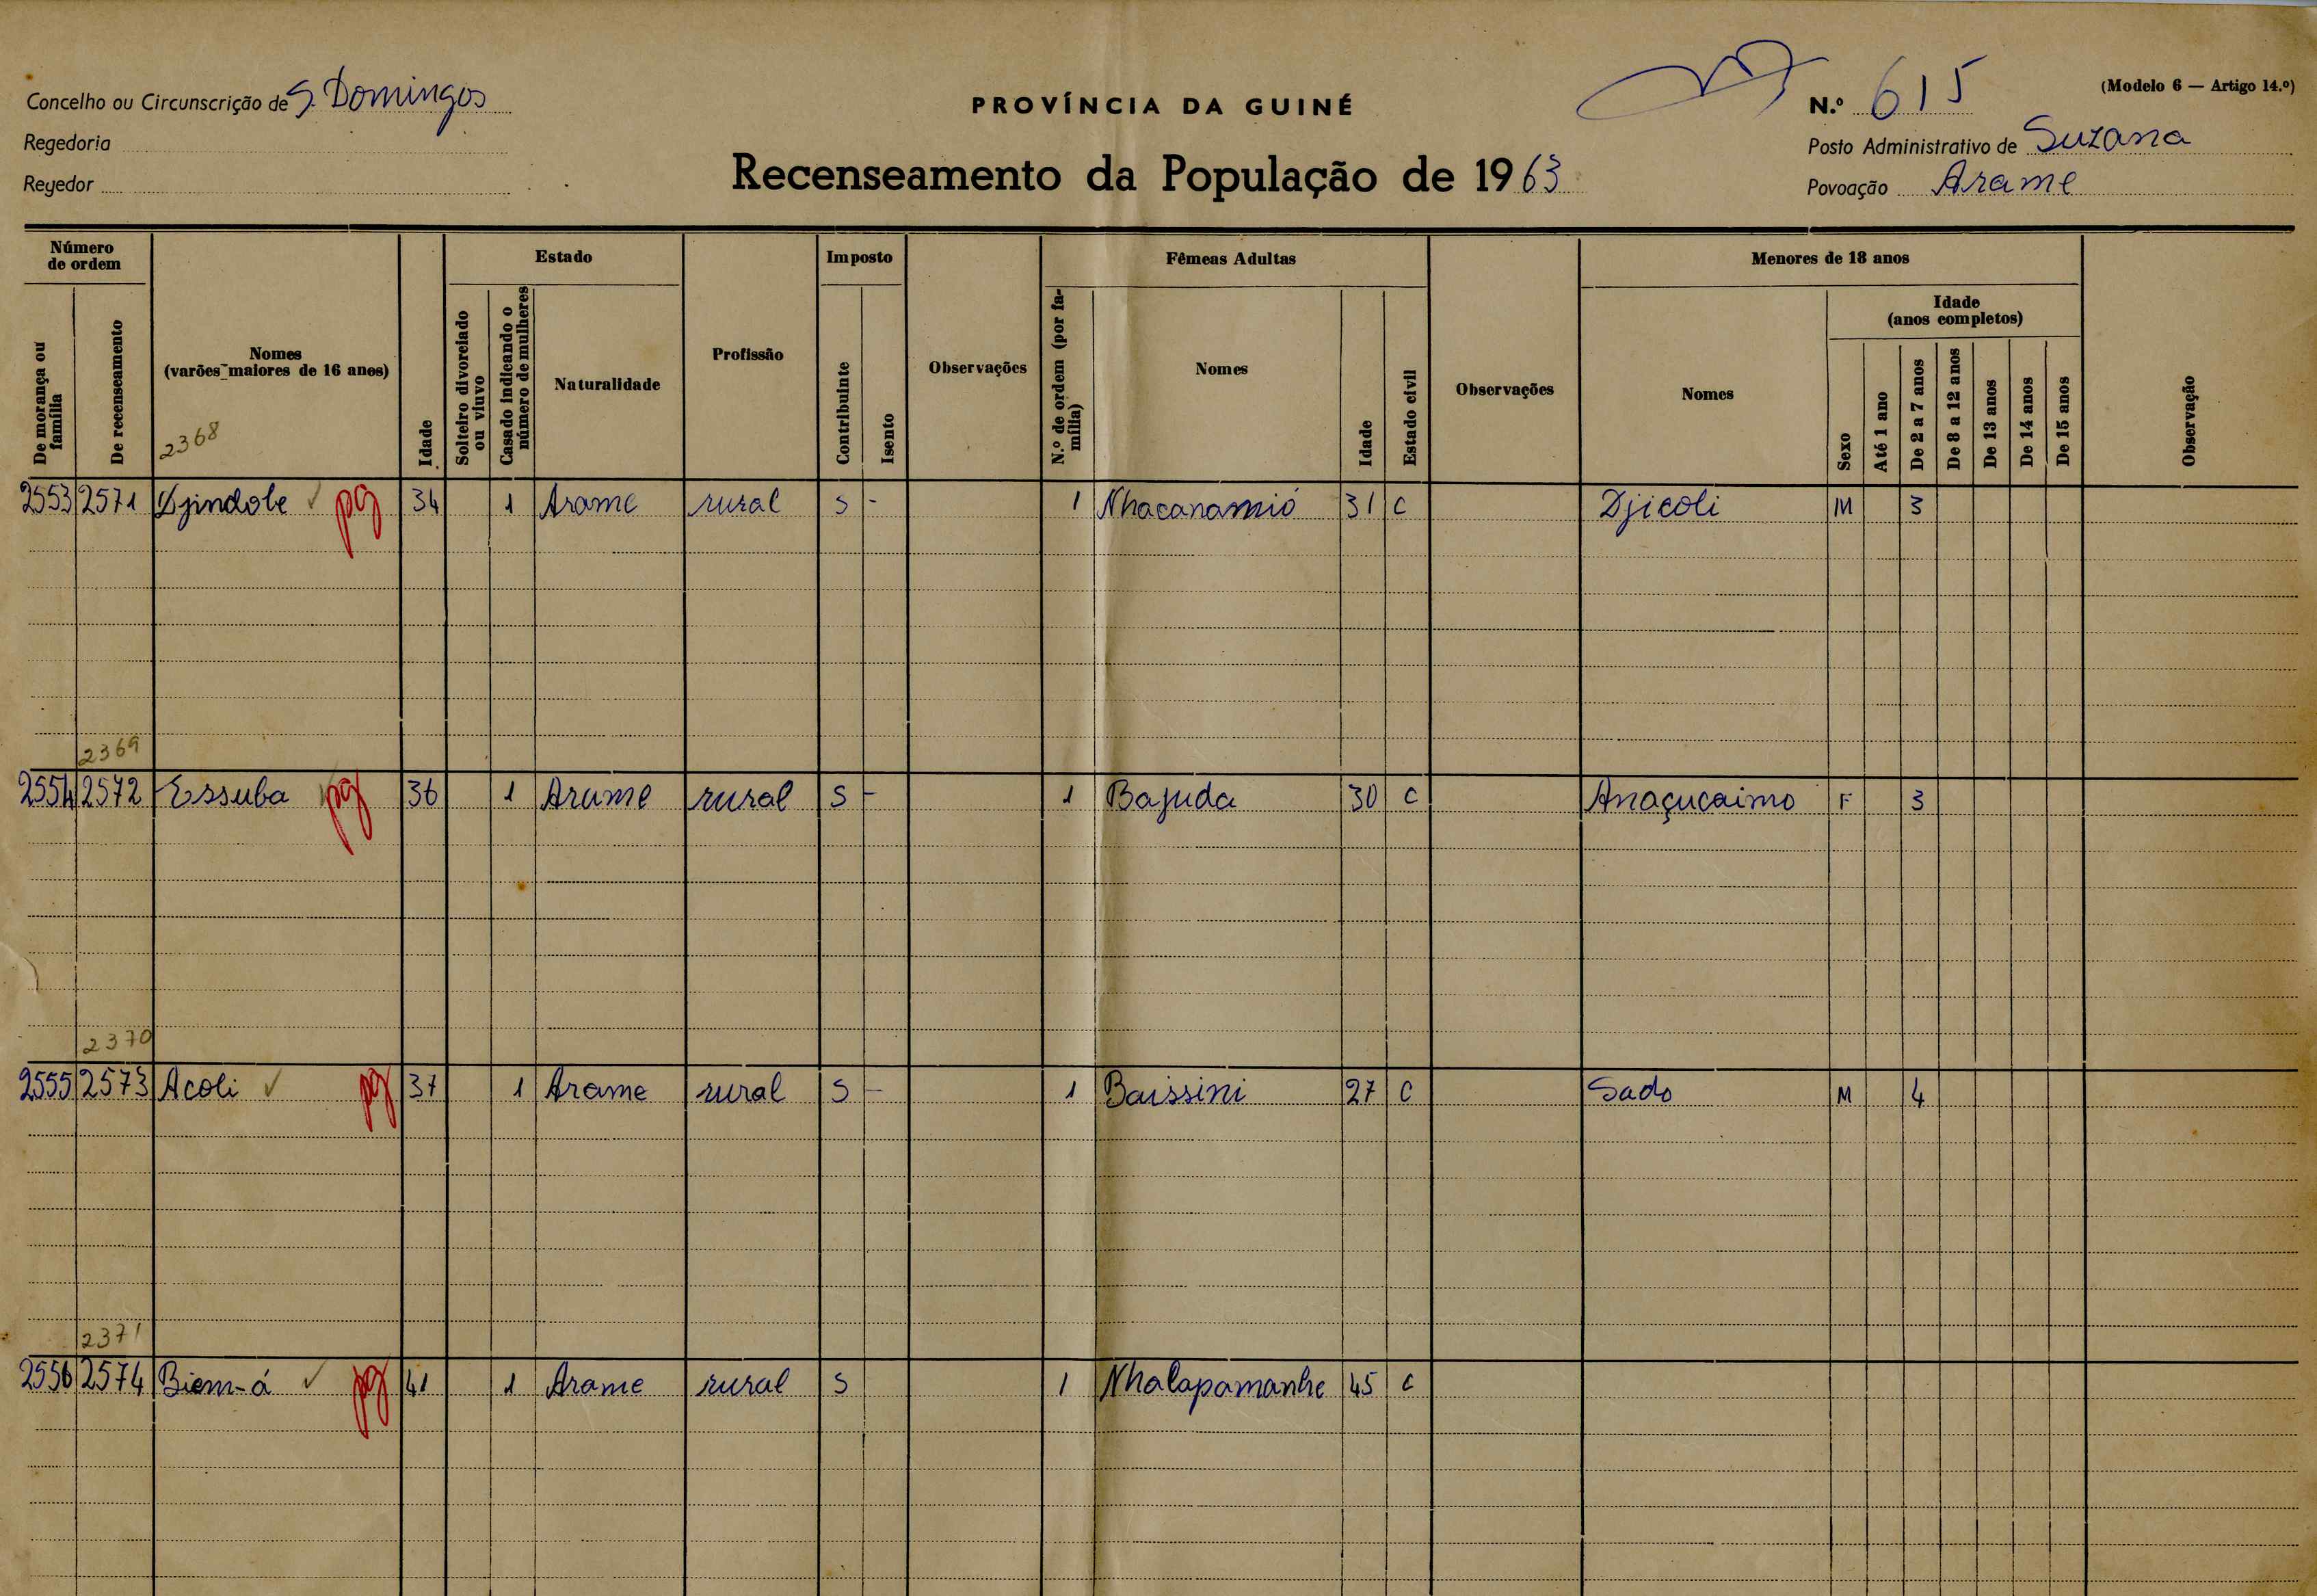 Concelho ou Circunscrição de S. Domingos
Regedoria
Regedor
PROVÍNCIA DA GUINÉ
Recenseamento da População de 1963
(Modelo 6 — Artigo 14.º)
N.º 615
Posto Administrativo de Suzana
Povoação Arame
Número de ordem
De morança ou família
De recenseamento
Nomes
(varões maiores de 16 anos)
2368
Idade
Estado
Solteiro divorciado ou viuvo
Casado indicando o número de mulheres
Naturalidade
Profissão
Imposto
Contribuinte
Isento
Observações
Fêmeas Adultas
N.º de ordem (por família)
Nomes
Idade
Estado civil
Observações
Menores de 18 anos
Nomes
Sexo
Idade
(anos completos)
Até 1 ano
De 2 a 7 anos
De 8 a 12 anos
De 13 anos
De 14 anos
De 15 anos
Observação
2553 2571 Djindole pg 34 1 Arame rural S - 1 Nhacanamió 31 C Djicoli M 3
2369
2554 2572 Essuba pg 36 1 Arame rural S - 1 Bajuda 30 C Anaçucaimo F 3
2370
2555 2573 Acoli pg 37 1 Arame rural S - 1 Baissini 27 C Sado M 4
2371
2556 2574 Biem-á pg 41 1 Arame rural S 1 Nhalapamanhe 45 C